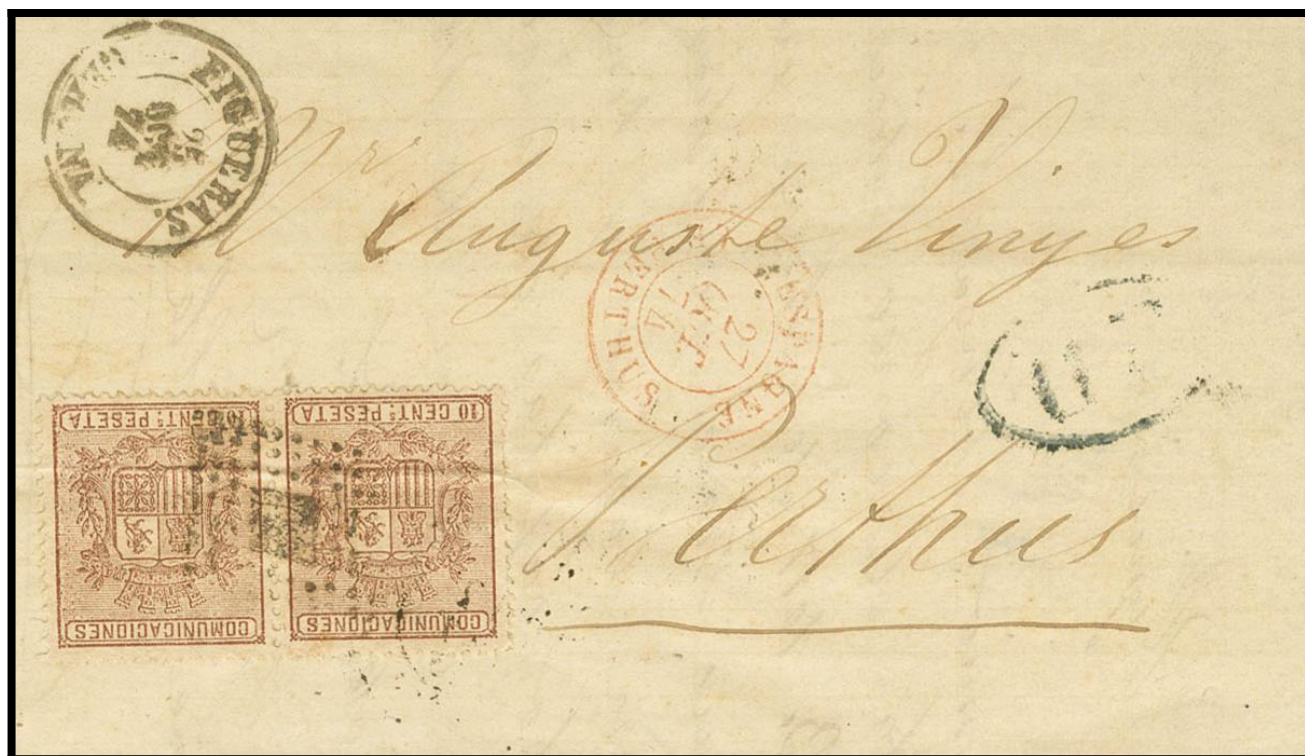 FIGUERAS.
26
OCT
74
Mr Auguste Vinyes
ESPAGNE
27
OCT
74
PERTHUS
Perthus
10 CENT.ˢ PESETA
COMUNICACIONES
10 CENT.ˢ PESETA
COMUNICACIONES